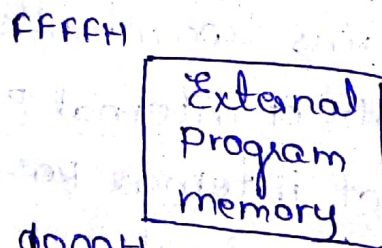 FFFFH
External
program
memory